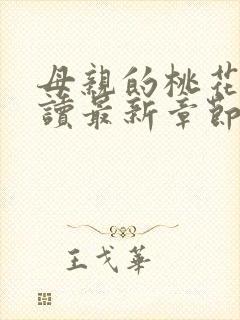 母親的桃花
讀最新章節
王戈華